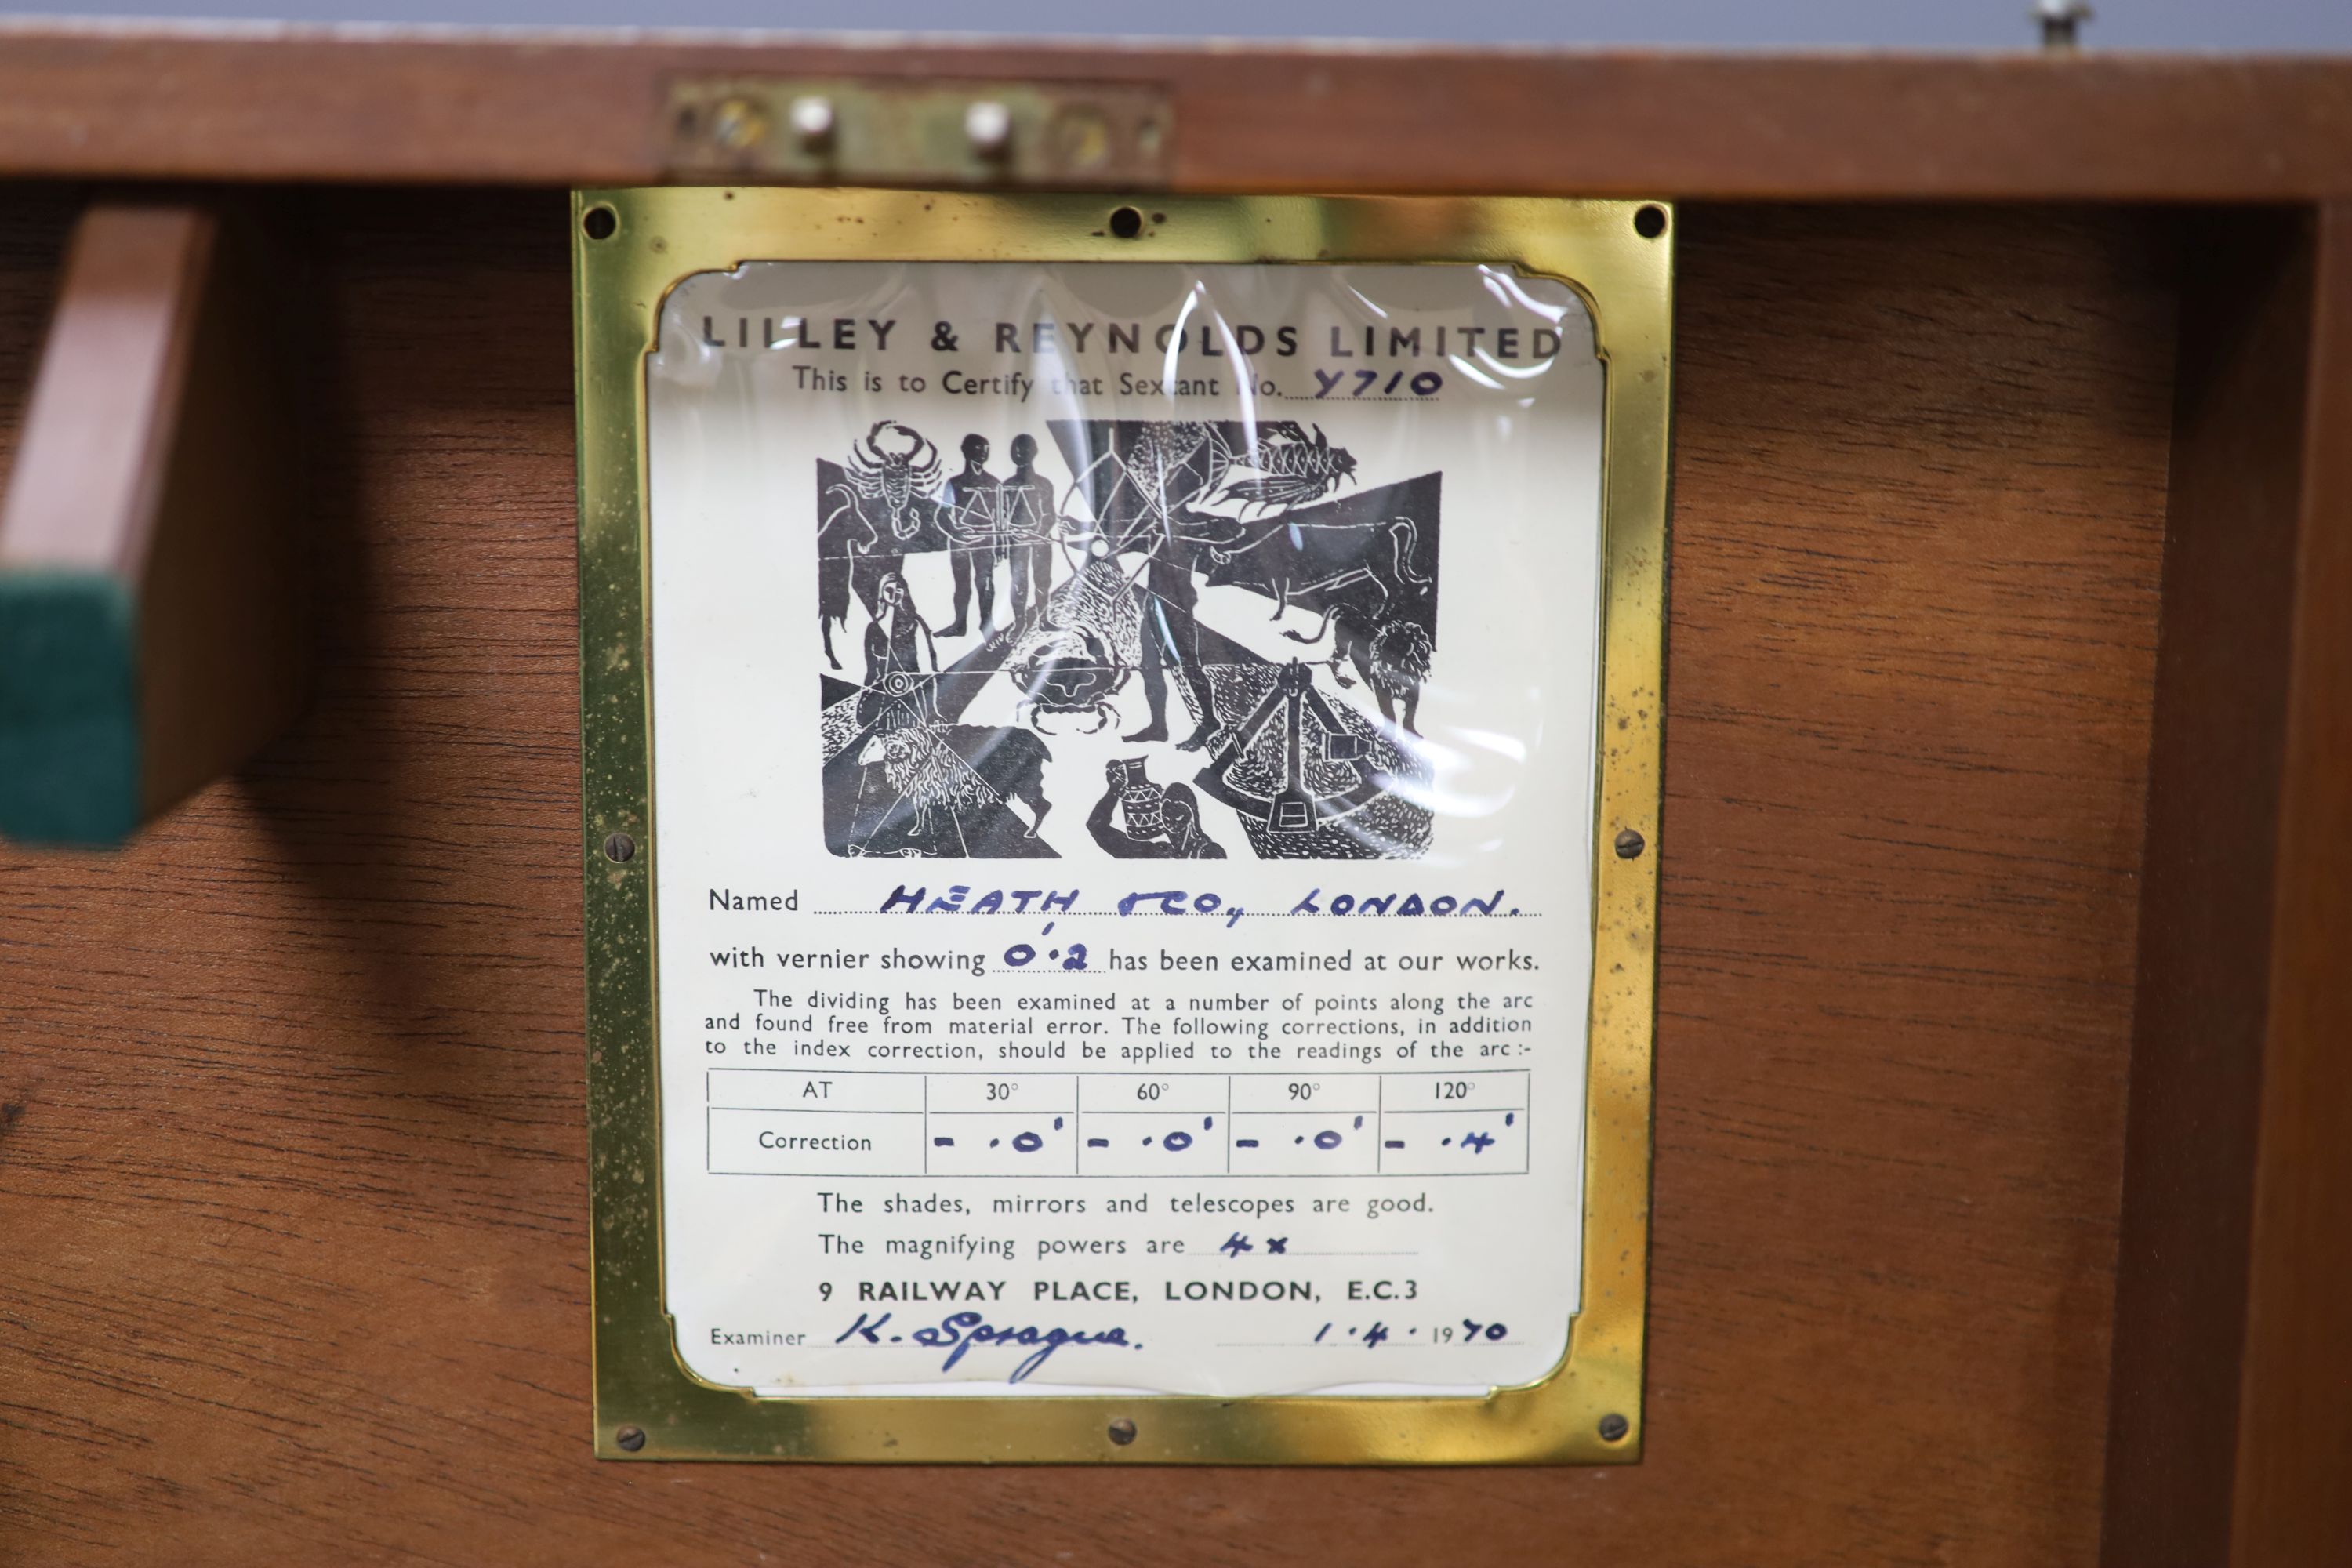 LILLEY & REYNOLDS LIMITED
This is to Certify that Sextant No. Y710
Named HEATH & CO, LONDON.
with vernier showing 0'·2 has been examined at our works.
The dividing has been examined at a number of points along the arc
and found free from material error. The following corrections, in addition
to the index correction, should be applied to the readings of the arc :-
AT 30° 60° 90° 120°
Correction - ·0' - ·0' - ·0' - ·4'
The shades, mirrors and telescopes are good.
The magnifying powers are 4 x
9 RAILWAY PLACE, LONDON, E.C.3
Examiner K. Sprague. 1 · 4 · 1970